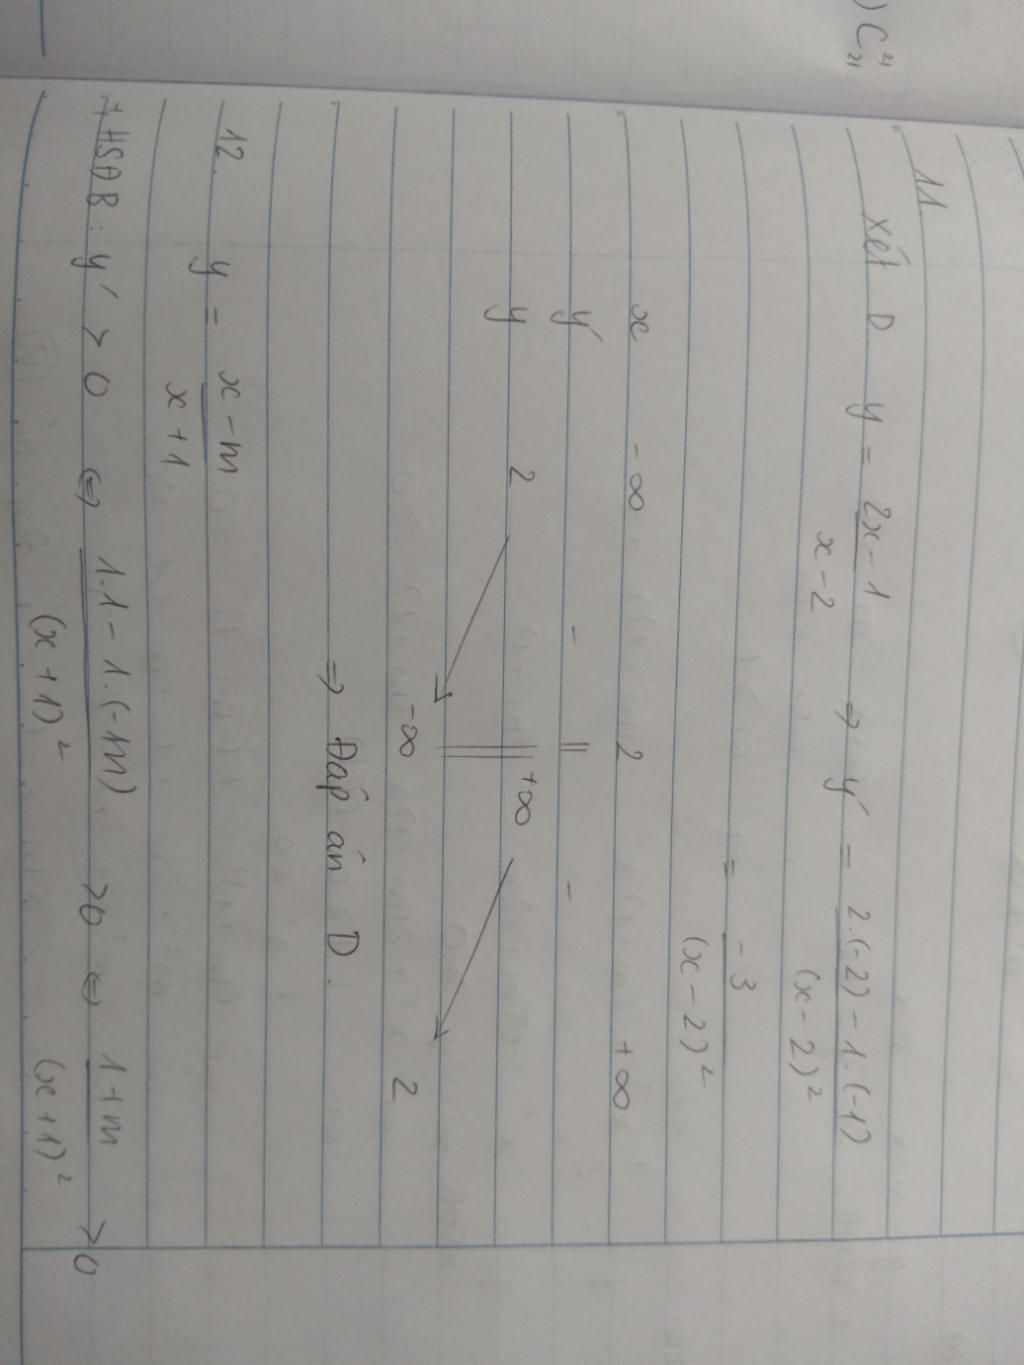 ) C²¹₂₁
11.
Xét D y = (2x - 1)/(x - 2) ⇒ y' = (2.(-2) - 1.(-1))/(x - 2)²
= (-3)/(x - 2)²
x -∞ 2 +∞
y' - || -
y 2 -∞ || +∞ 2
⇒ Đáp án D.
12. y = (x - m)/(x + 1)
+, HSĐB : y' > 0 ⇔ (1.1 - 1.(-m))/(x + 1)² > 0 ⇔ (1 + m)/(x + 1)² > 0